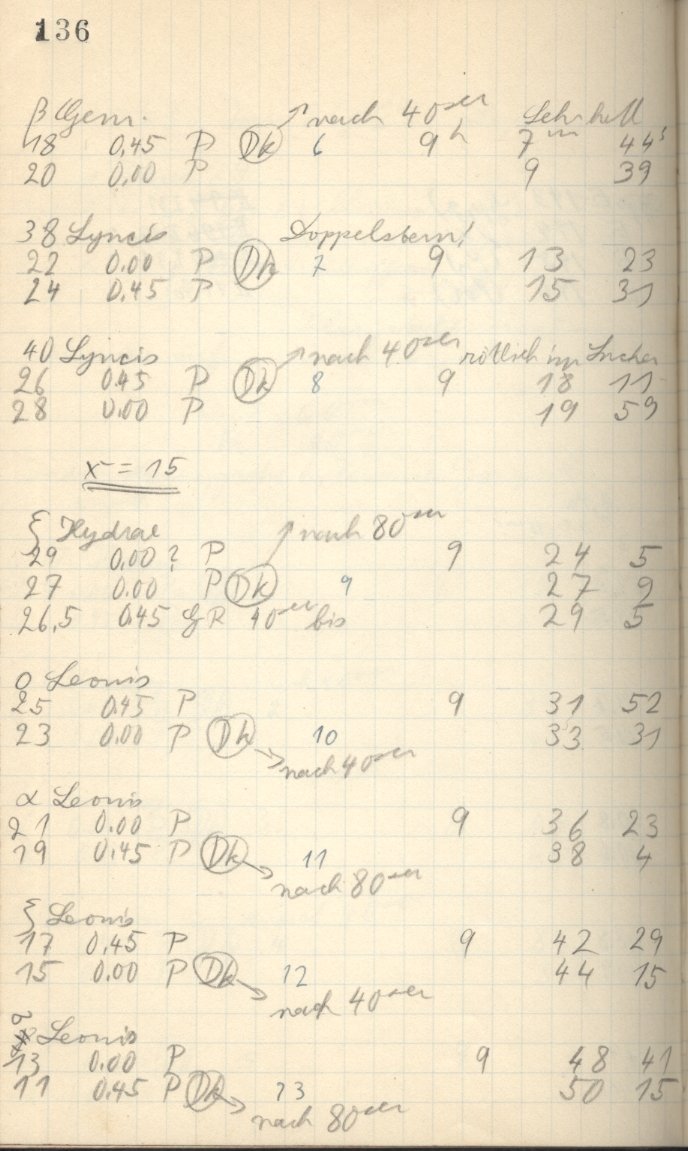 136
β Gem. nach 40er Sehr hell
18 0,45 P Dk 6 9h 7m 44s
20 0.00 P 9 39
38 Lyncis Doppelstern!
22 0.00 P Dk 7 9 13 23
24 0.45 P 15 31
40 Lyncis nach 40er rötlich im Sucher
26 0.45 P Dk 8 9 18 11
28 0.00 P 19 59
x = 15
ξ Hydrae nach 80er
29 0.00 ? P 9 24 5
27 0.00 P Dk 9 27 9
26,5 0.45 GR 40er bis 29 5
o Leonis
25 0.45 P 9 31 52
23 0.00 P Dk 10 33 31
nach 40er
α Leonis
21 0.00 P 9 36 23
19 0.45 P Dk 11 38 4
nach 80er
ξ Leonis
17 0.45 P 9 42 29
15 0.00 P Dk 12 44 15
nach 40er
Leonis
13 0.00 P 9 48 41
11 0.45 P Dk 13 50 15
nach 80er